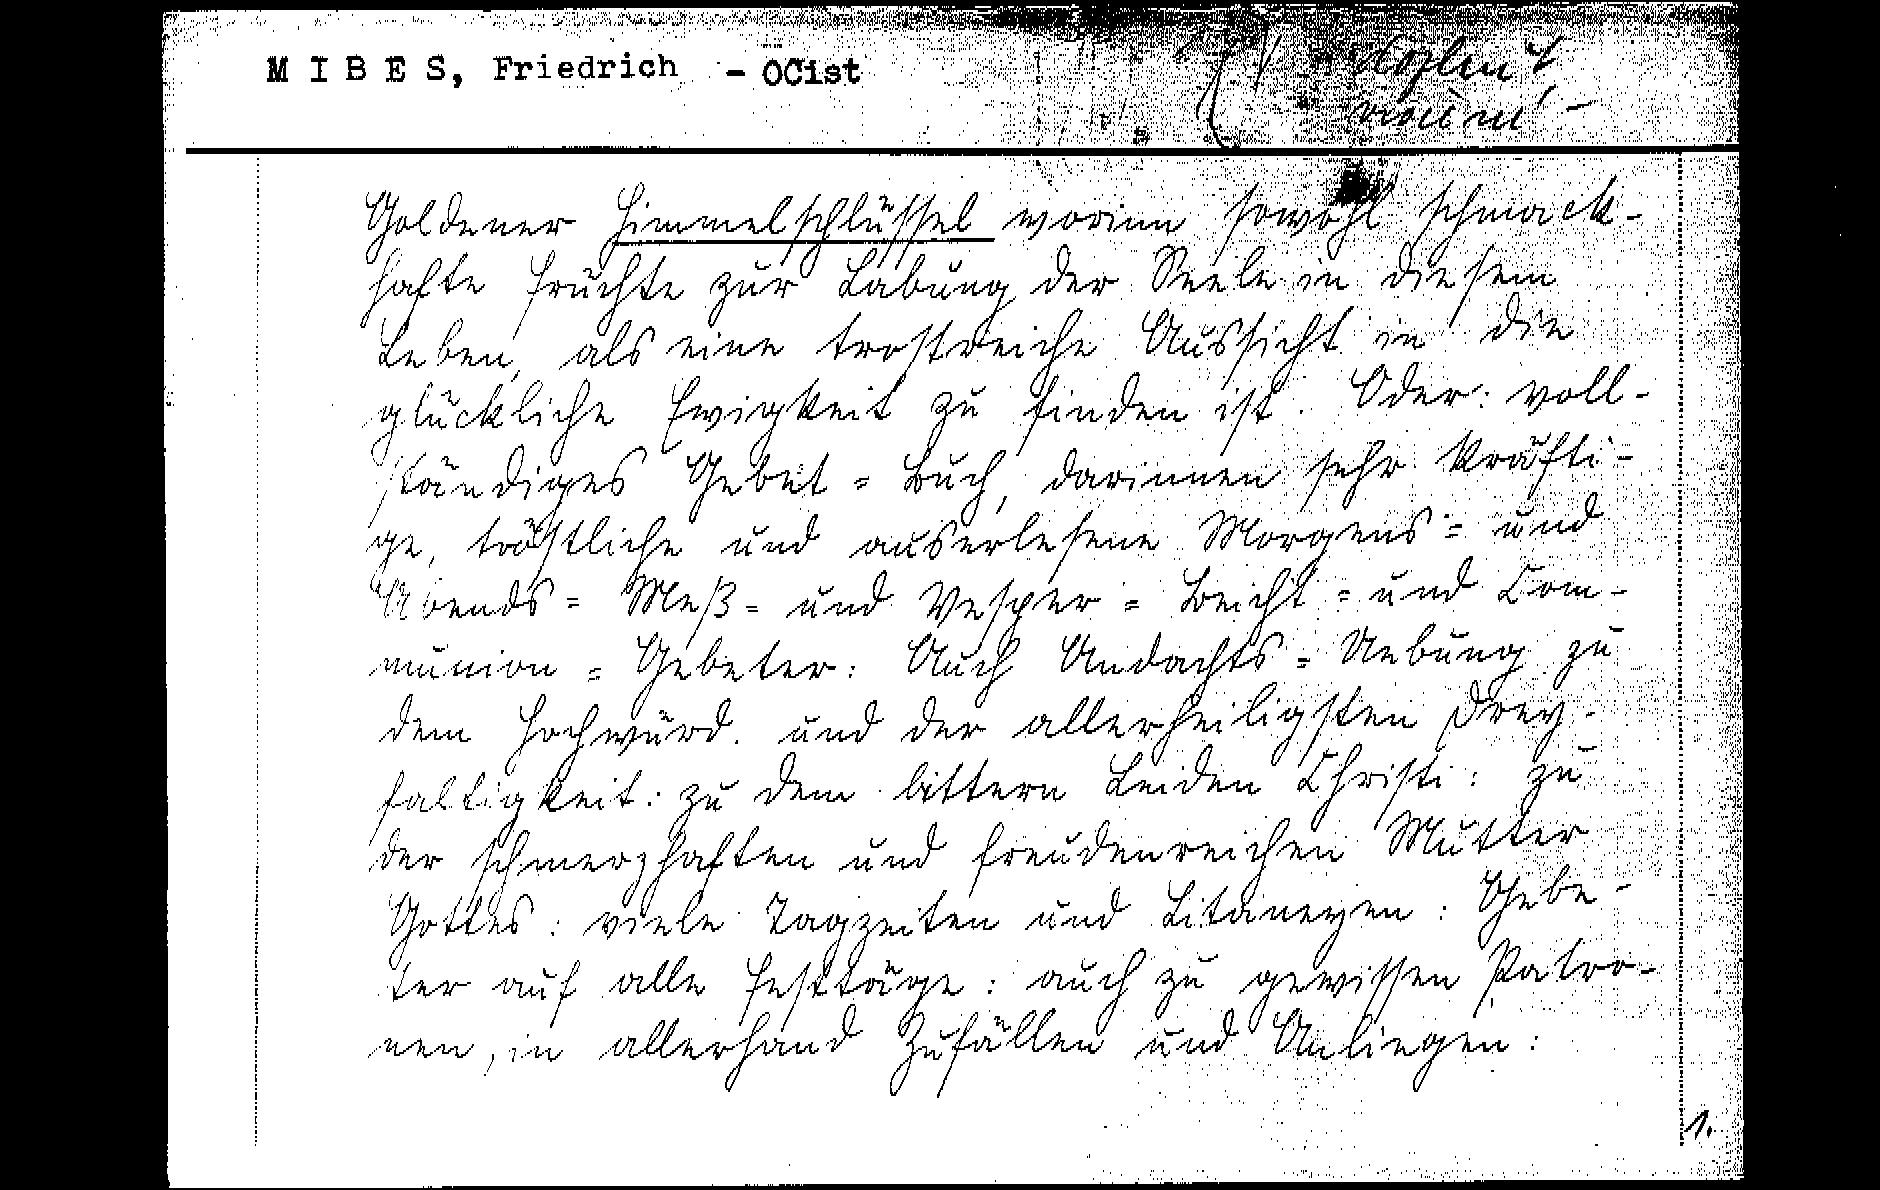 MIBES, Friedrich - OCist
Goldener Himmelschlüssel worinn sowohl schmack-
hafte Früchte zur Labung der Seele in diesem
Leben, als eine trostreiche Aussicht in die
glückliche Ewigkeit zu finden ist. Oder: voll-
ständiges Gebet = Buch, darinnen sehr kräfti-
ge, tröstliche und auserlesene Morgens = und
Abends = Meß = und Vesper = Beicht = und Com-
munion = Gebeter: Auch Andachts = Uebung zu
dem Hochwürd. und der allerheiligsten Drey-
faltigkeit: zu dem bittern Leiden Christi: zu
der schmerzhaften und freudenreichen Mutter
Gottes: viele Tagzeiten und Litaneyen: Gebe-
ter auf alle Festtäge: auch zu gewissen Patro-
nen, in allerhand Zufällen und Anliegen:
1.